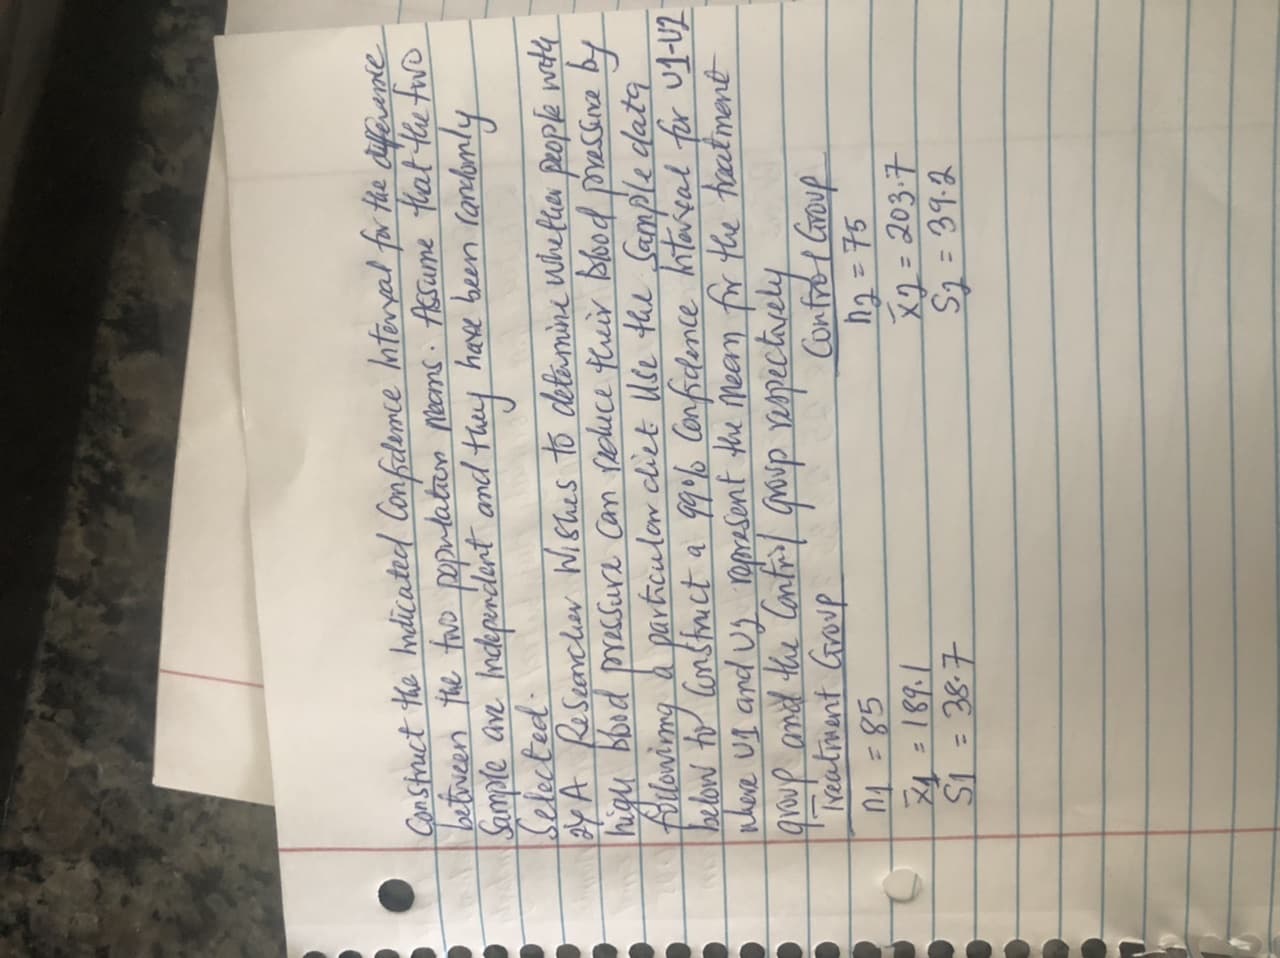 Construct the indicated Confidence Interval for the difference
between the two population means. Assume that the two
Sample are independent and they have been randomly
Selected.
24 A Researcher wishes to determine whether people with
high blood pressure can reduce their blood pressure by
following a particular diet. Use the Sample data
below to Construct a 99% Confidence interval for U1-U2
where U1 and U2 represent the mean for the treatment
group and the Control group respectively
Treatment Group Control Group
n1 = 85 n2 = 75
x̄1 = 189.1 x̄2 = 203.7
S1 = 38.7 S2 = 39.2